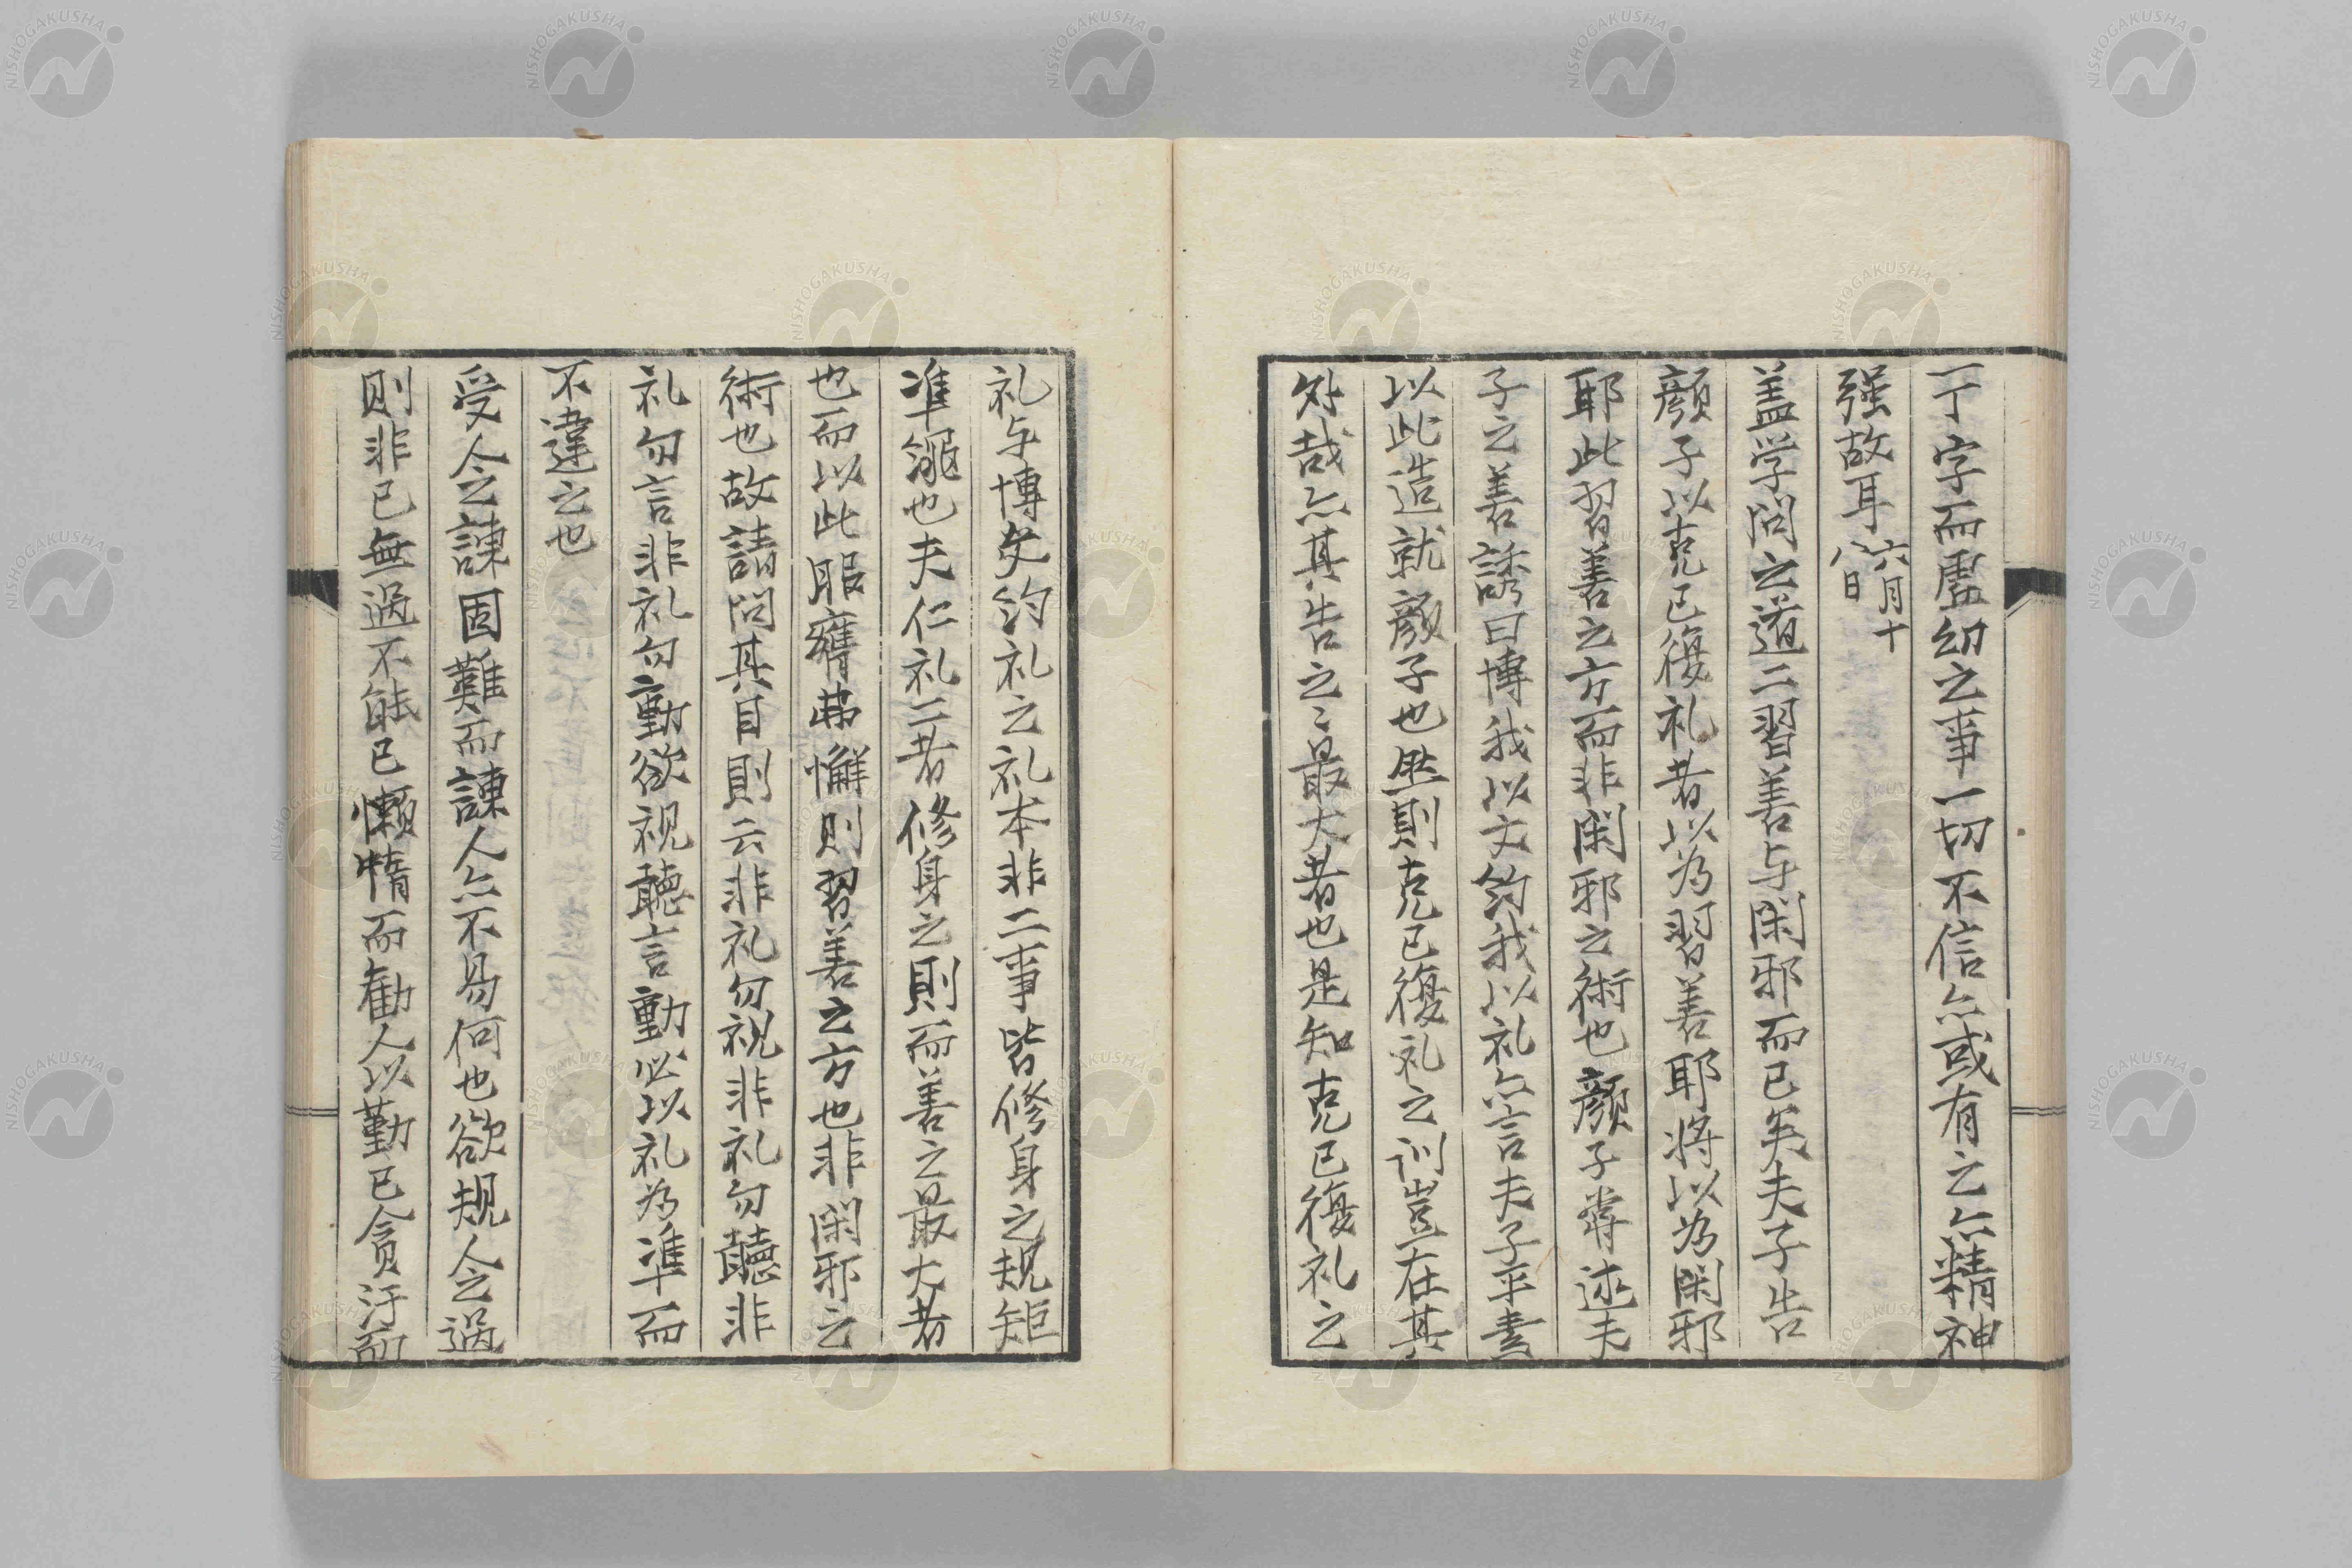 一丁字而虛幻之事一切不信亦或有之亦精神
强故耳六月十八日
盖学問之道二習善与閑邪而已矣夫子告
顔子以克已復礼者以為習善耶将以為閑邪
耶此習善之方而非閑邪之術也顔子嘗述夫
子之善誘曰博我以文約我以礼亦言夫子平素
以此造就顔子也然則克已復礼之训豈在其
外哉亦其告之之最大者也是知克已復礼之
礼与博文約礼之礼本非二事皆修身之規矩
準繩也夫仁礼二者修身之則而善之最大者
也而以此服膺弗懈則習善之方也非閑邪之
術也故請問其目則云非礼勿視非礼勿聽非
礼勿言非礼勿動欲視聽言動必以礼為準而
不違之也
受人之諫固難而諫人亦不易何也欲規人之過
則非已無過不能已懶惰而勸人以勤已貪汙而
NISHOGAKUSHA